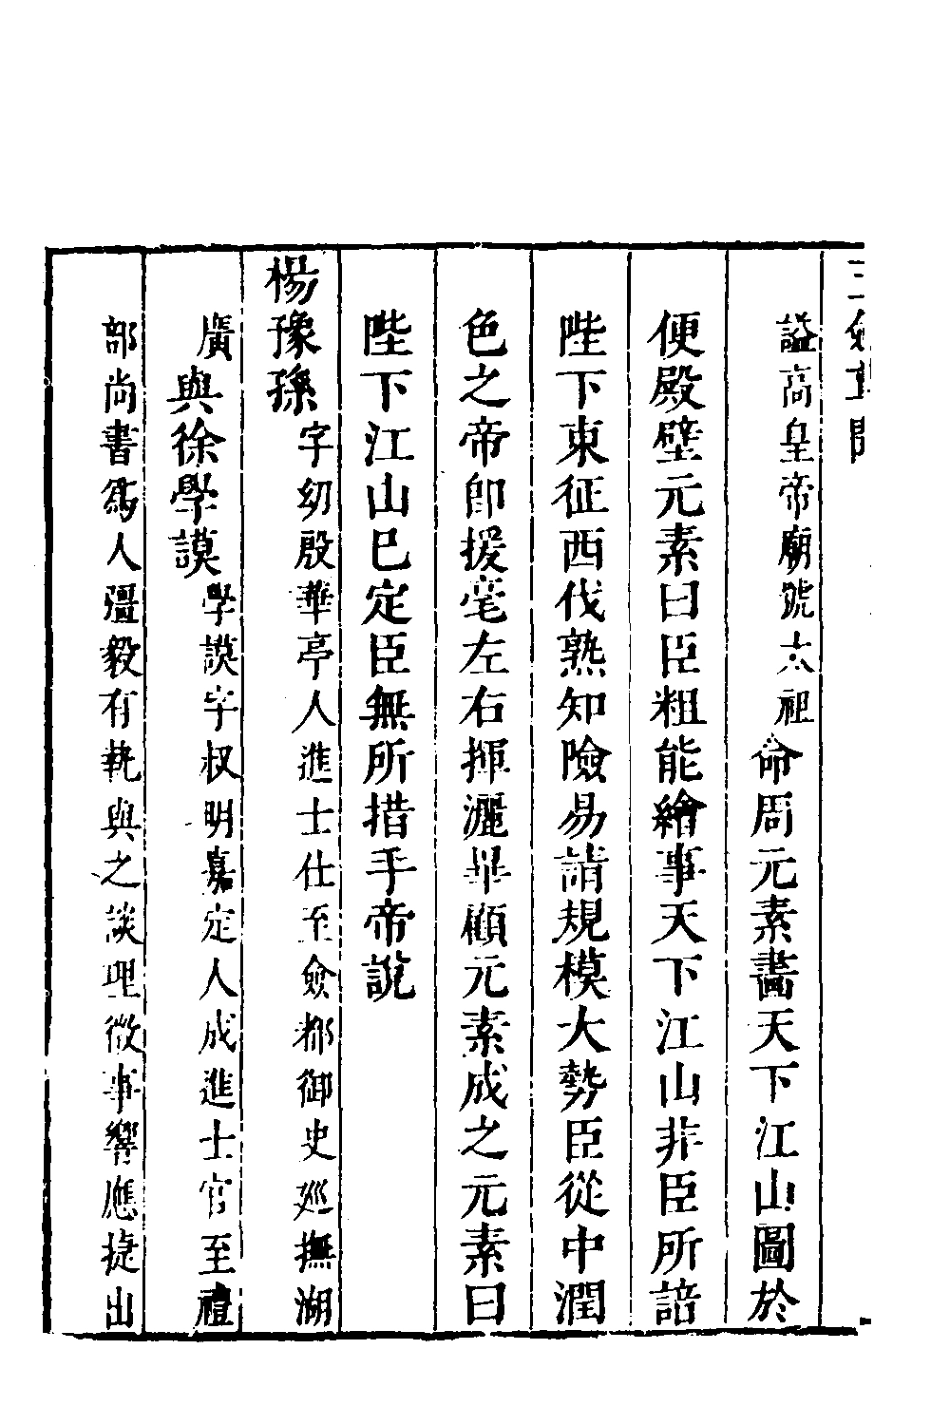 諡高皇帝廟號太祖命周元素畵天下江山圖於
便殿壁元素曰臣粗能繪事天下江山非臣所諳
陛下東征西伐熟知險易請規模大勢臣從中潤
色之帝卽援毫左右揮灑畢顧元素成之元素曰
陛下江山已定臣無所措手帝說
楊豫孫字幼殷華亭人進士仕至僉都御史廵撫湖
廣與徐學謨學謨字叔明嘉定人成進士官至禮
部尚書爲人彊毅有執與之談理微事響應捷出